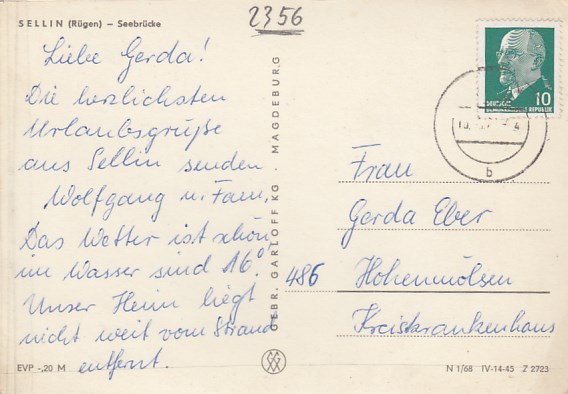 SELLIN (Rügen) – Seebrücke
2356
Liebe Gerda!
Die herzlichsten
Urlaubsgrüße
aus Sellin senden
Wolfgang u. Fam.
Das Wetter ist schön,
im Wasser sind 16°.
Unser Heim liegt
nicht weit vom Strand
entfernt.
EVP -,20 M
GEBR. GARLOFF KG · MAGDEBURG
10
DEUTSCHE
DEMOKRATISCHE REPUBLIK
b
Frau
Gerda Eber
486 Hohenmölsen
Kreiskrankenhaus
N 1/68 IV-14-45 Z 2723